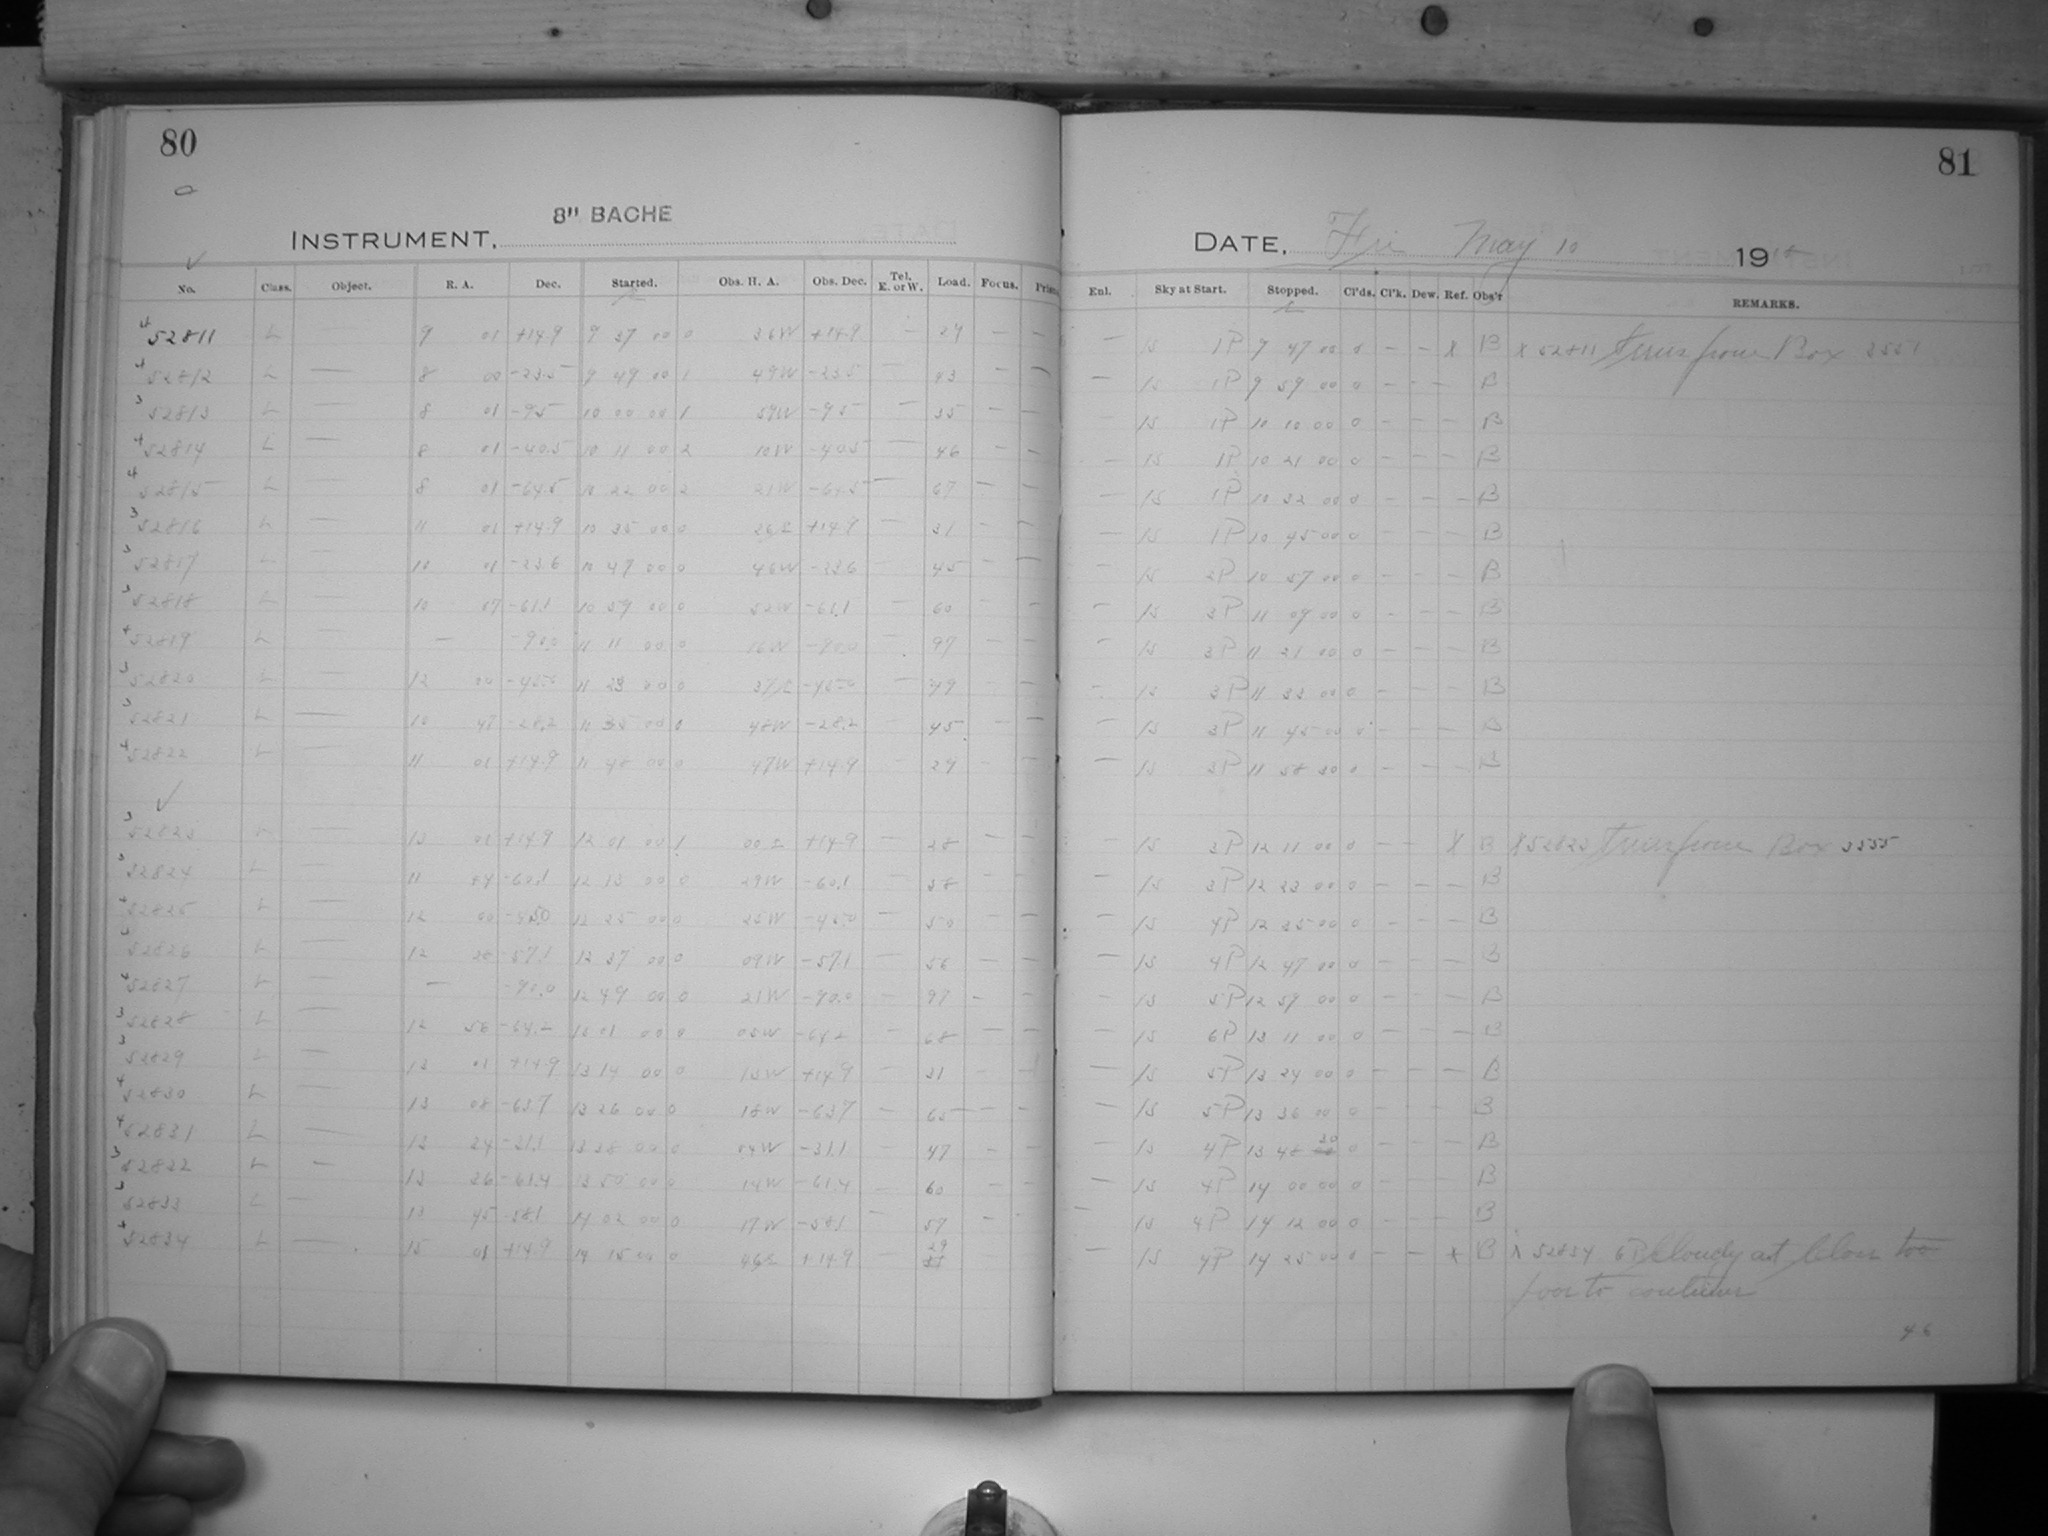 80
8" BACHE
INSTRUMENT,
No. Class. Object. R. A. Dec. Started. Obs. H. A. Obs. Dec. Tel. E. or W. Load. Focus.
4 52811 L — 9 01 +14.9 9 37 00 0 36W +14.9 — 29 — —
4 52812 L — 8 00 -23.5 9 49 00 1 49W -23.5 — 43 — —
3 52813 L — 8 01 -9.5 10 00 00 1 59W -9.5 — 35 — —
4 52814 L — 8 01 -40.5 10 11 00 2 10W -40.5 — 46 — —
4 52815 L — 8 01 -64.5 10 22 00 2 21W -64.5 — 67 — —
3 52816 L — 11 01 +14.9 10 35 00 0 26E +14.9 — 31 — —
3 52817 L — 10 01 -33.6 10 47 00 0 46W -33.6 — 45 — —
3 52818 L — 10 07 -61.1 10 59 00 0 52W -61.1 — 60 — —
4 52819 L — — -90.0 11 11 00 0 16W -90.0 — 97 — —
3 52820 L — 12 00 -45.0 11 23 00 0 37E -45.0 — 49 — —
3 52821 L — 10 47 -28.2 11 35 00 0 48W -28.2 — 45 — —
4 52822 L — 11 01 +14.9 11 48 00 0 47W +14.9 — 29 — —
3 52823 L — 13 01 +14.9 12 01 00 1 00E +14.9 — 28 — —
3 52824 L — 11 44 -60.1 12 13 00 0 29W -60.1 — 58 — —
4 52825 L — 12 00 -45.0 12 25 00 0 25W -45.0 — 50 — —
3 52826 L — 12 28 -57.1 12 37 00 0 09W -57.1 — 56 — —
4 52827 L — — -90.0 12 49 00 0 21W -90.0 — 97 — —
3 52828 L — 12 58 -64.2 13 01 00 0 03W -64.2 — 68 — —
3 52829 L — 13 01 +14.9 13 14 00 0 13W +14.9 — 31 — —
4 52830 L — 13 08 -63.7 13 26 00 0 18W -63.7 — 65 — —
4 52831 L — 13 34 -31.1 13 38 00 0 04W -31.1 — 47 — —
3 52832 L — 13 36 -61.4 13 50 00 0 14W -61.4 — 60 — —
3 52833 L — 13 45 -58.1 14 02 00 0 17W -58.1 — 57 — —
4 52834 L — 15 01 +14.9 14 15 00 0 46E +14.9 — 29
81
DATE, Fri May 10 1918
Enl. Sky at Start. Stopped. Cl'ds. Cl'k. Dew. Ref. Obs'r REMARKS.
— 15 1P 9 47 00 0 — — X B X 52811 from Box 3551
— 15 1P 9 59 00 0 — — — B
— 15 1P 10 10 00 0 — — — B
— 15 1P 10 21 00 0 — — — B
— 15 1P 10 32 00 0 — — — B
— 15 1P 10 45 00 0 — — — B
— 15 2P 10 57 00 0 — — — B
— 15 3P 11 09 00 0 — — — B
— 15 3P 11 21 00 0 — — — B
— 15 3P 11 33 00 0 — — — B
— 15 3P 11 45 00 0 — — — B
— 15 3P 11 58 30 0 — — — B
— 15 3P 12 11 00 0 — — X B X 52823 from Box 3555
— 15 3P 12 23 00 0 — — — B
— 15 4P 12 35 00 0 — — — B
— 15 4P 12 47 00 0 — — — B
— 15 5P 12 59 00 0 — — — B
— 15 6P 13 11 00 0 — — — B
— 15 5P 13 24 00 0 — — — B
— 15 5P 13 36 00 0 — — — B
— 15 4P 13 48 30 0 — — — B
— 15 4P 14 00 00 0 — — — B
— 15 4P 14 12 00 0 — — — B
— 15 4P 14 25 00 0 — — X B X 52834 cloudy at close too
poor to continue
46